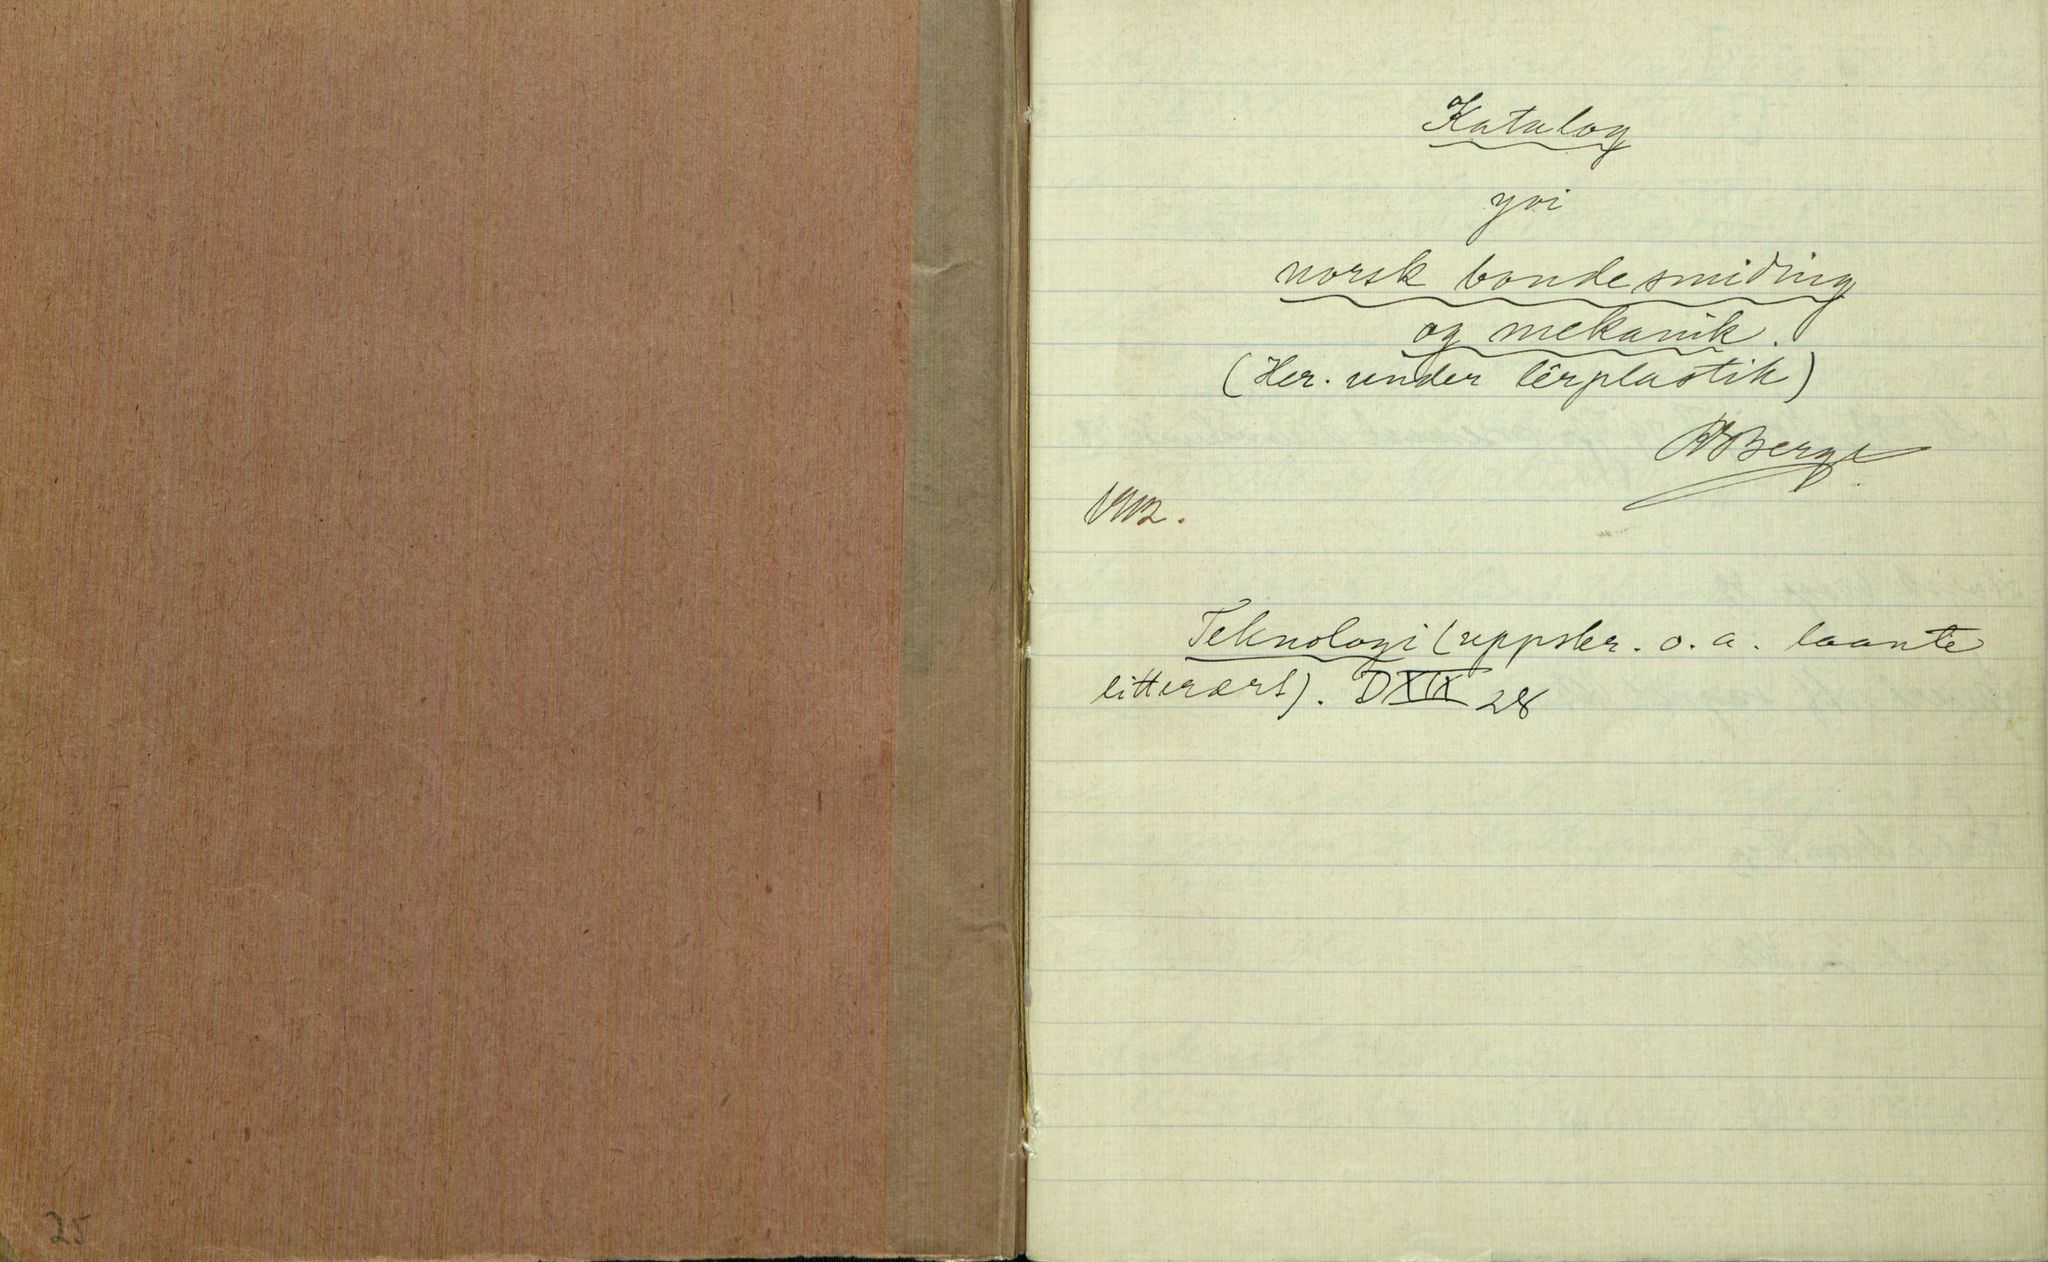 Katalog
yvi
norsk bondesmiding
og mekanik.
(Her. under lêrplastik)
RBerge
1912.
Teknologi (uppskr. o. a. laante
litterært). DXIX 28
25